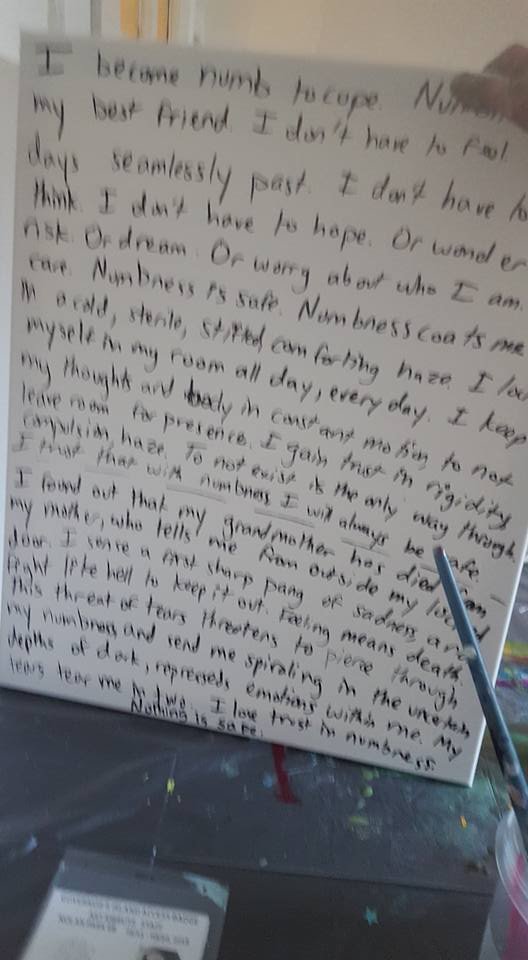 I become numb to cope.
my best friend. I don't have to feel.
days seamlessly past. I don't have to
think. I don't have to hope. Or wonder
Ask. Or dream. Or worry about who I am.
care. Numbness is safe. Numbness coats me
in a cold, sterile, stilted, comforting haze. I
myself in my room all day, everyday. I keep
my thoughts and body in constant motion, to not
leave room for presence. I gain trust in rigidity,
compulsion, haze. To not exist is the only way through.
I trust that with numbness I will always be safe. –
I found out that my grandmother has died from
my mother, who tells me from outside my locked
door. I sense a first sharp pang of sadness and
fight like hell to keep it out. Feeling means death.
This threat of tears threatens to pierce through
my numbness and send me spiraling in the
depths of dark, repressed emotions within me. My
tears tear me in two. I lose trust in numbness.
Nothing is safe.